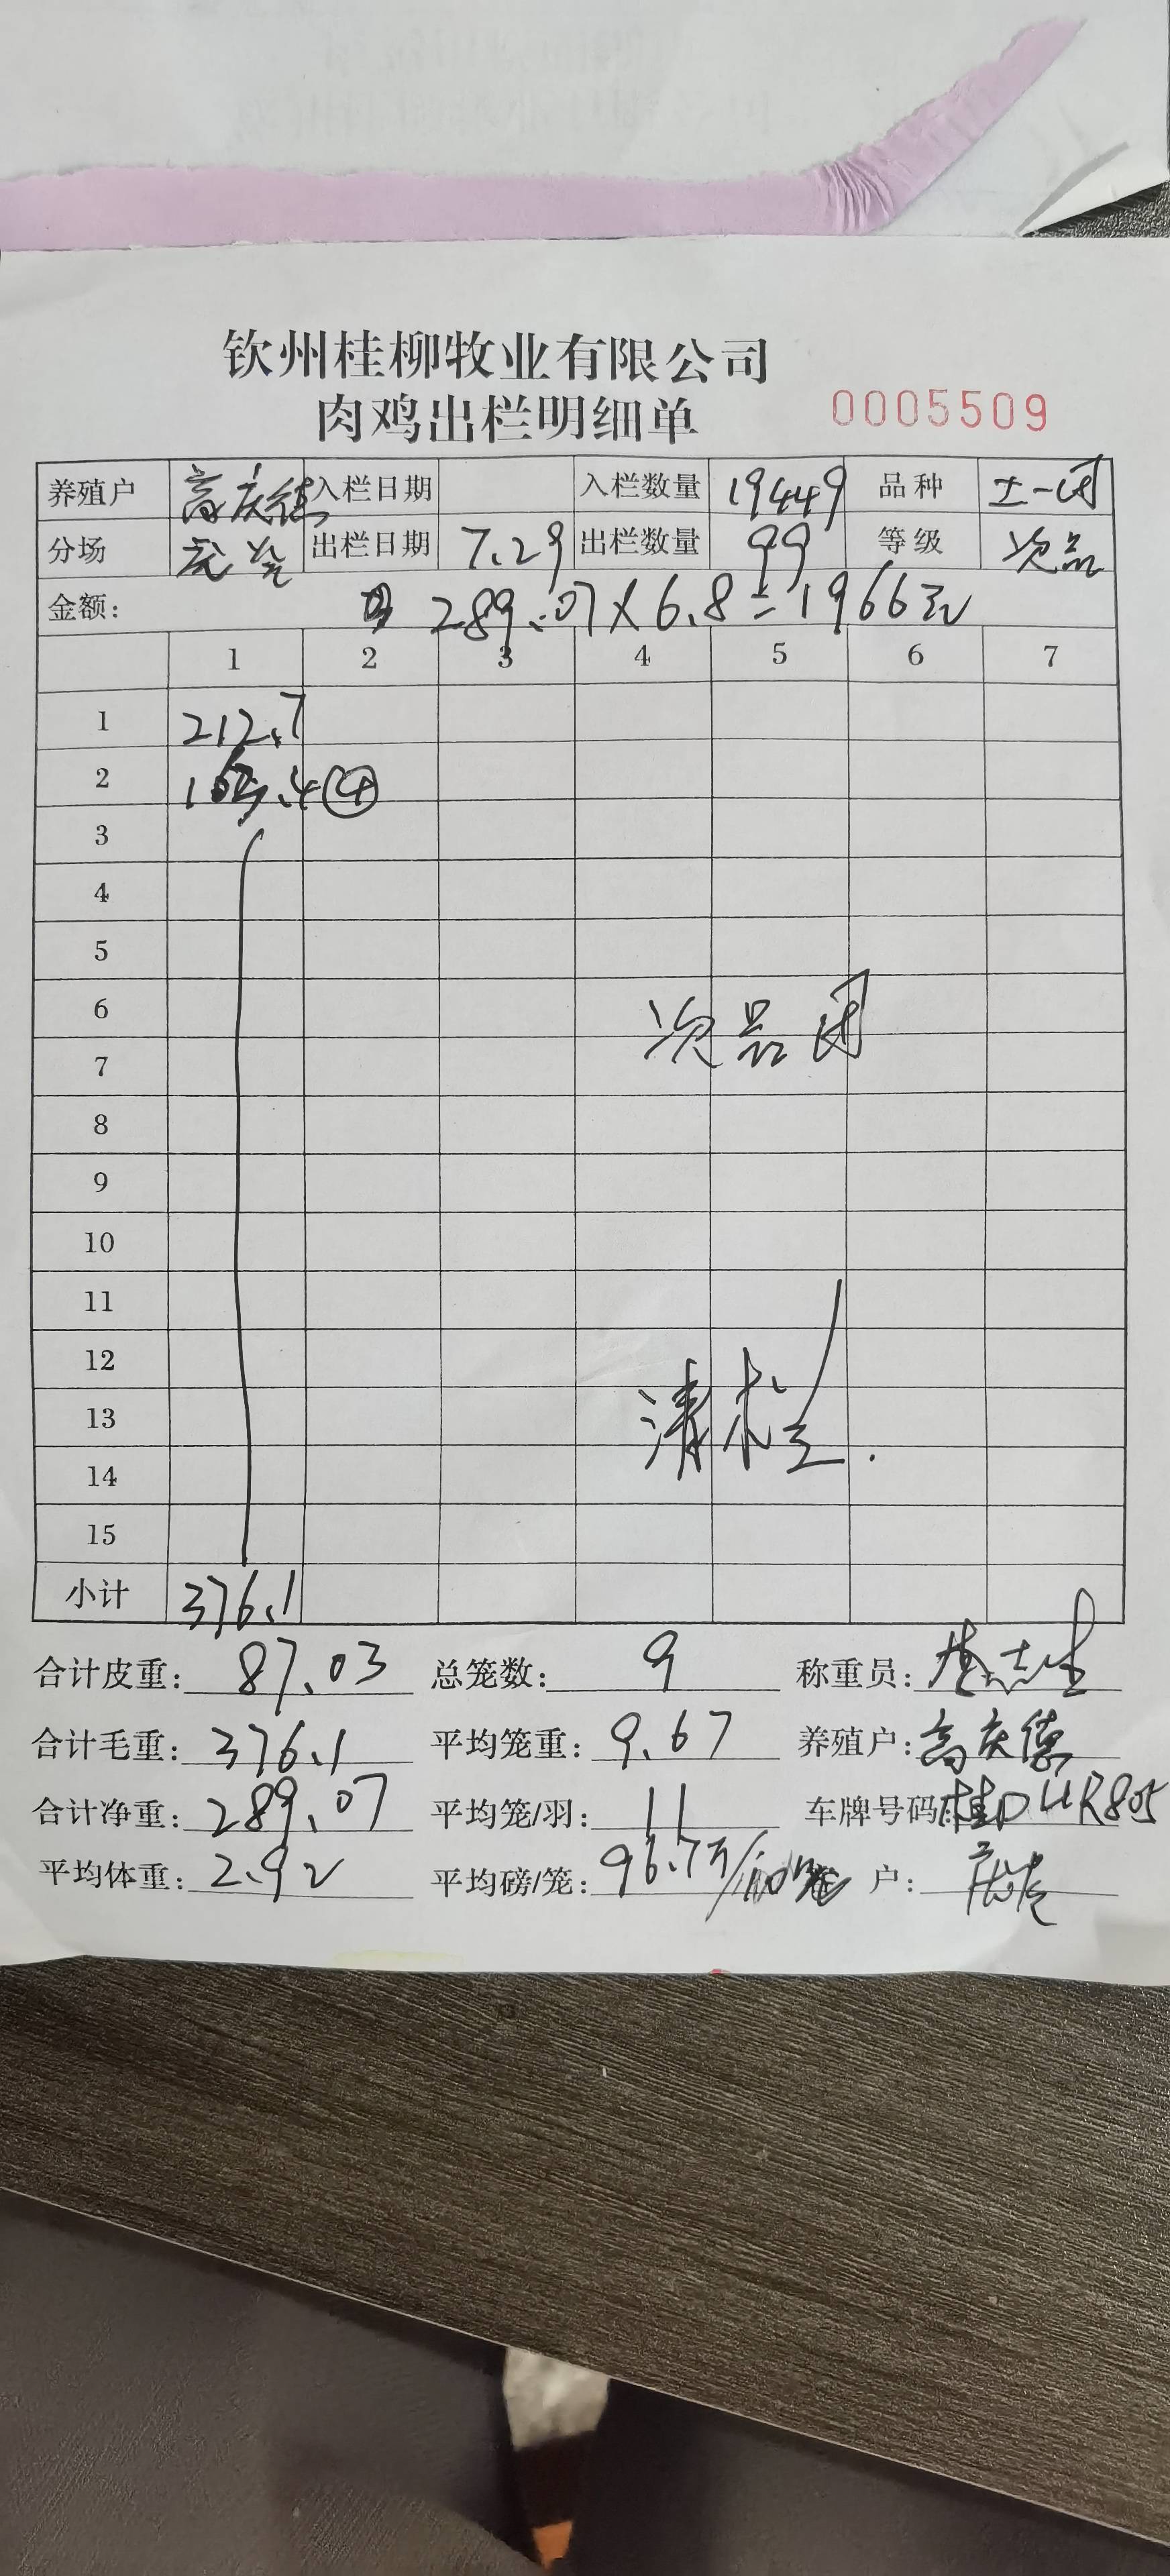 钦州桂柳牧业有限公司
肉鸡出栏明细单 0005509
养殖户 高庆德 入栏日期 入栏数量 19449 品种 土一
分场 出栏日期 7.29 出栏数量 99 等级 次品
金额: 289.07×6.8=1966元
1 2 3 4 5 6 7
1 212.7
2 163.4 ④
3
4
5
6 次品
7
8
9
10
11
12
13 清栏.
14
15
小计 376.1
合计皮重: 87.03 总笼数: 9 称重员:
合计毛重: 376.1 平均笼重: 9.67 养殖户: 高庆德
合计净重: 289.07 平均笼/羽: 11 车牌号码: 桂D
平均体重: 2.92 平均磅/笼: 96.7 户: